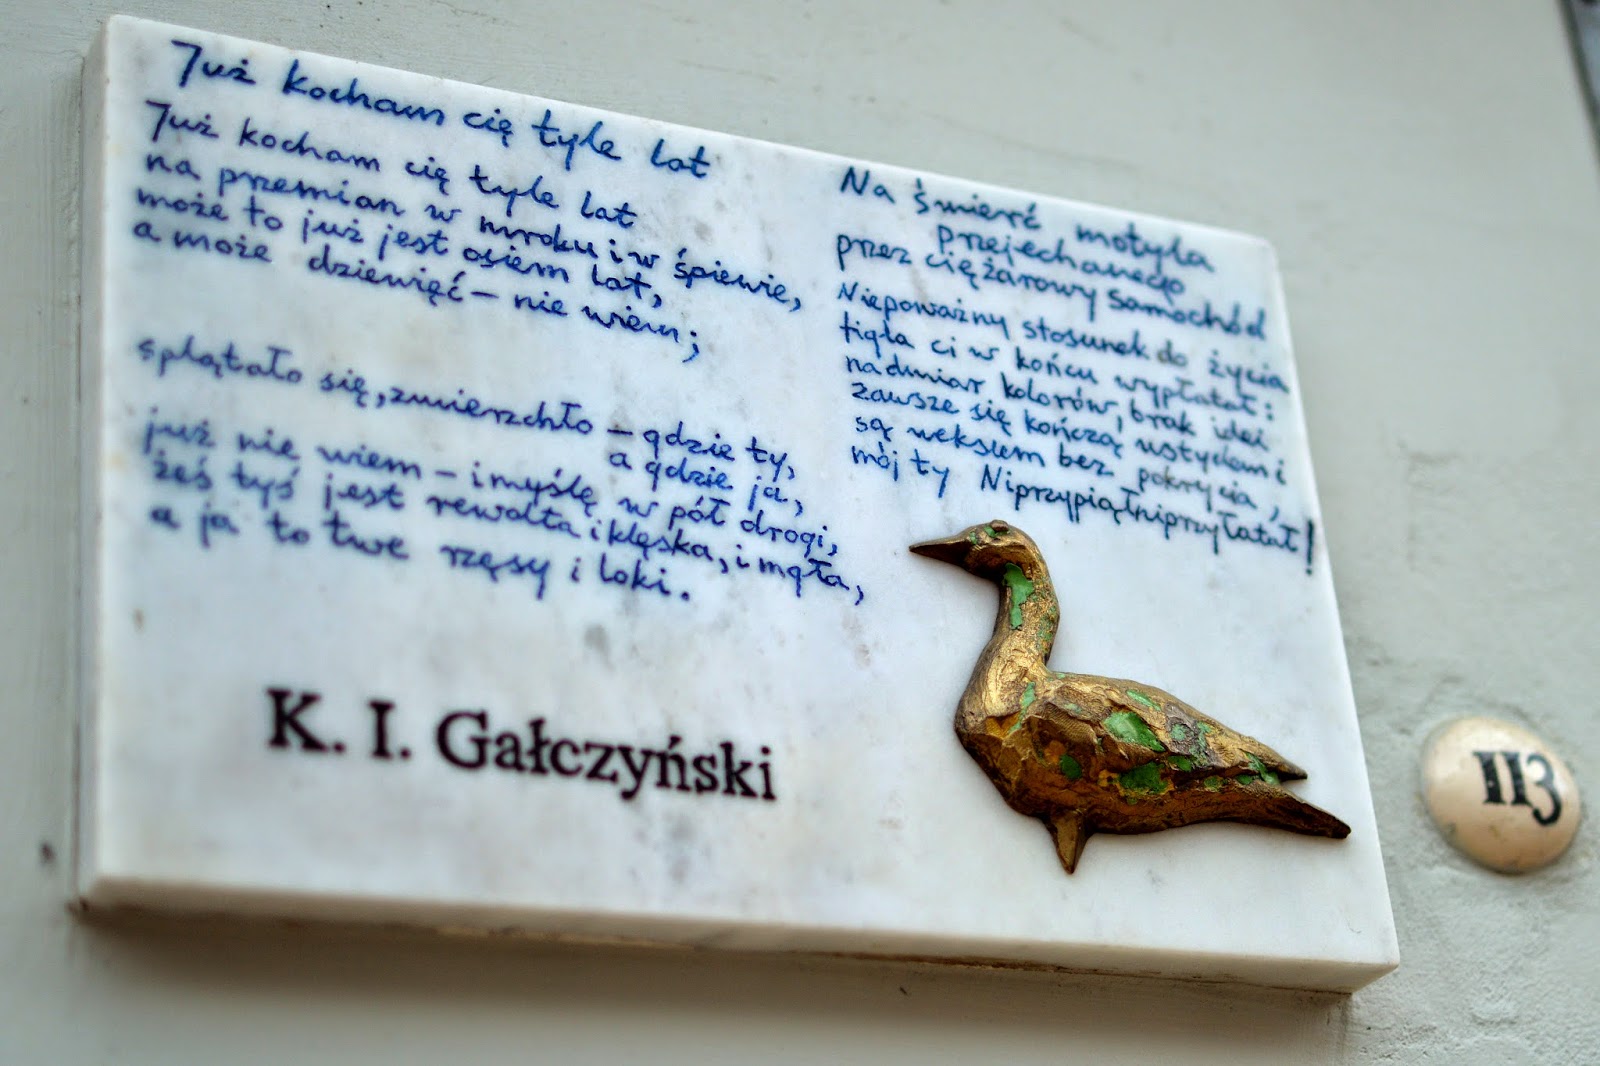 Już kocham cię tyle lat
Już kocham cię tyle lat
na przemian w mroku i w śpiewie,
może to już jest osiem lat,
a może dziewięć – nie wiem;
splątało się, zmierzchło – gdzie ty,
a gdzie ja,
już nie wiem – i myślę w pół drogi,
żeś tyś jest rewolta i klęska, i mgła,
a ja to twe rzęsy i loki.
Na śmierć motyla
przejechanego
przez ciężarowy samochód
Niepoważny stosunek do życia
figla ci w końcu wypłatał:
nadmiar kolorów, brak idei
zawsze się kończą wstydem i
są wekslem bez pokrycia,
mój ty Niprzypiąłniprzyłatał!
K. I. Gałczyński
113